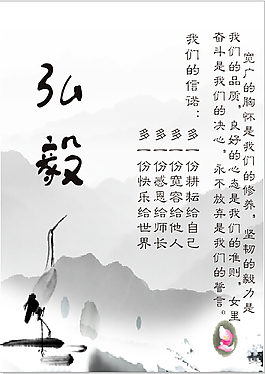 宽广的胸怀是我们的修养，坚韧的毅力是
我们的品质，良好的心态是我们的准则，女里
奋斗是我们的决心，永不放弃是我们的誓言。
我们的信诺：
多一份耕耘给自己
多一份宽容给他人
多一份感恩给师长
多一份快乐给世界
弘毅